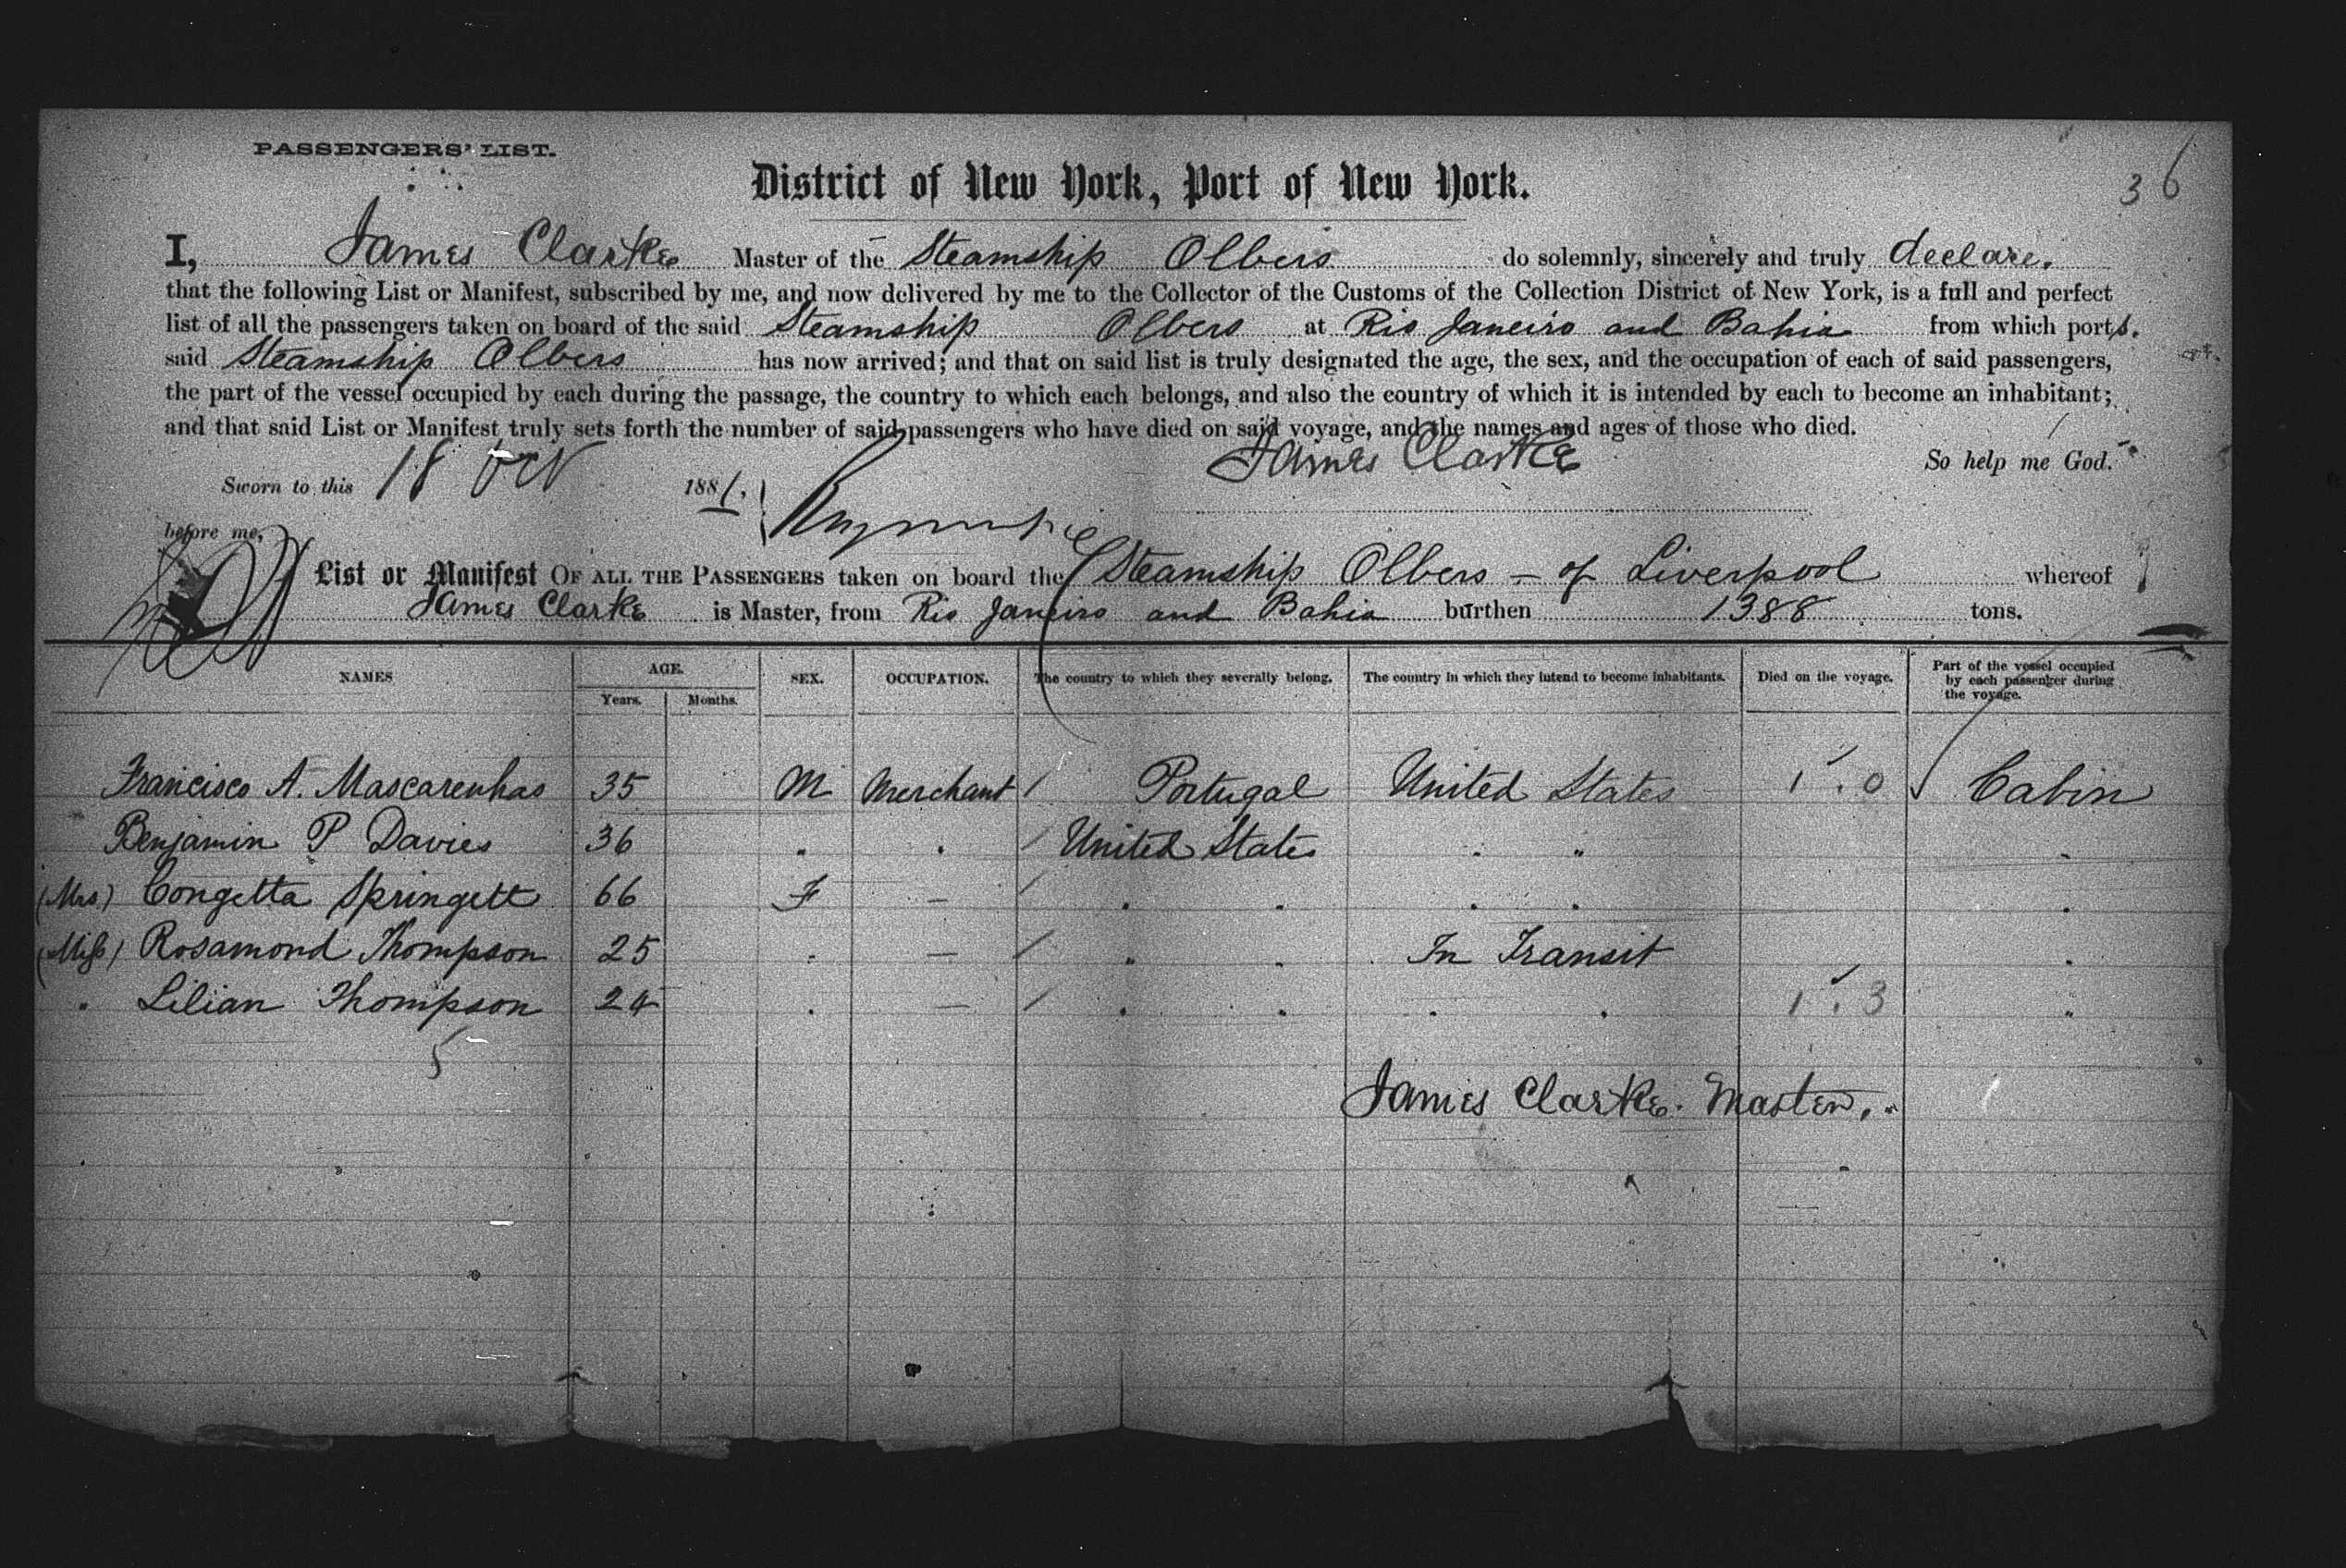 PASSENGERS' LIST.
District of New York, Port of New York.
36
I, James Clarke Master of the Steamship Olbers do solemnly, sincerely and truly declare.
that the following List or Manifest, subscribed by me, and now delivered by me to the Collector of the Customs of the Collection District of New York, is a full and perfect
list of all the passengers taken on board of the said Steamship Olbers at Rio Janeiro and Bahia from which ports.
said Steamship Olbers has now arrived; and that on said list is truly designated the age, the sex, and the occupation of each of said passengers,
the part of the vessel occupied by each during the passage, the country to which each belongs, and also the country of which it is intended by each to become an inhabitant;
and that said List or Manifest truly sets forth the number of said passengers who have died on said voyage, and the names and ages of those who died.
James Clarke So help me God.
Sworn to this 18 1881,
before me,
List or Manifest OF ALL THE PASSENGERS taken on board the Steamship Olbers - of Liverpool whereof
James Clarke is Master, from Rio Janeiro and Bahia burthen 1388 tons.
NAMES AGE. Years. Months. SEX. OCCUPATION. The country to which they severally belong. The country in which they intend to become inhabitants. Died on the voyage. Part of the vessel occupied by each passenger during the voyage.
Francisco A. Mascarenhas 35 M Merchant / Portugal United States 1.0 Cabin
Benjamin P Davies 36 " " / United States " " "
(Mrs) Congetta Springett 66 F - / " " " " "
(Miss) Rosamond Thompson 25 " - / " " In Transit "
" Lilian Thompson 24 " - / " " " " 1.3 "
5
James Clarke. Master.